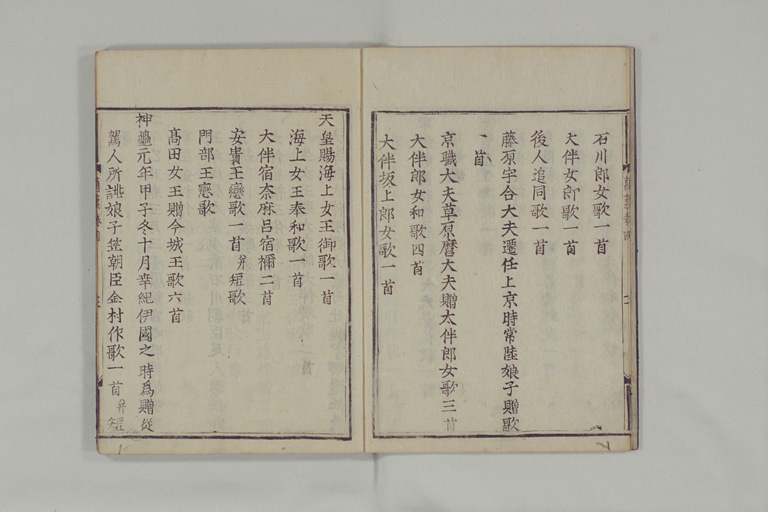 石川郎女歌一首
大伴女郎歌一首
後人追同歌一首
藤原宇合大夫遷任上京時常陸娘子贈歌
一首
京職大夫草原麿大夫贈大伴郎女歌三首
大伴郎女和歌四首
大伴坂上郎女歌一首
天皇賜海上女王御歌一首
海上女王奉和歌一首
大伴宿奈麻呂宿禰二首
安貴王戀歌一首并短歌
門部王戀歌
髙田女王贈今城王歌六首
神龜元年甲子冬十月幸紀伊國之時爲贈従
駕人所誂娘子笠朝臣金村作歌一首并短